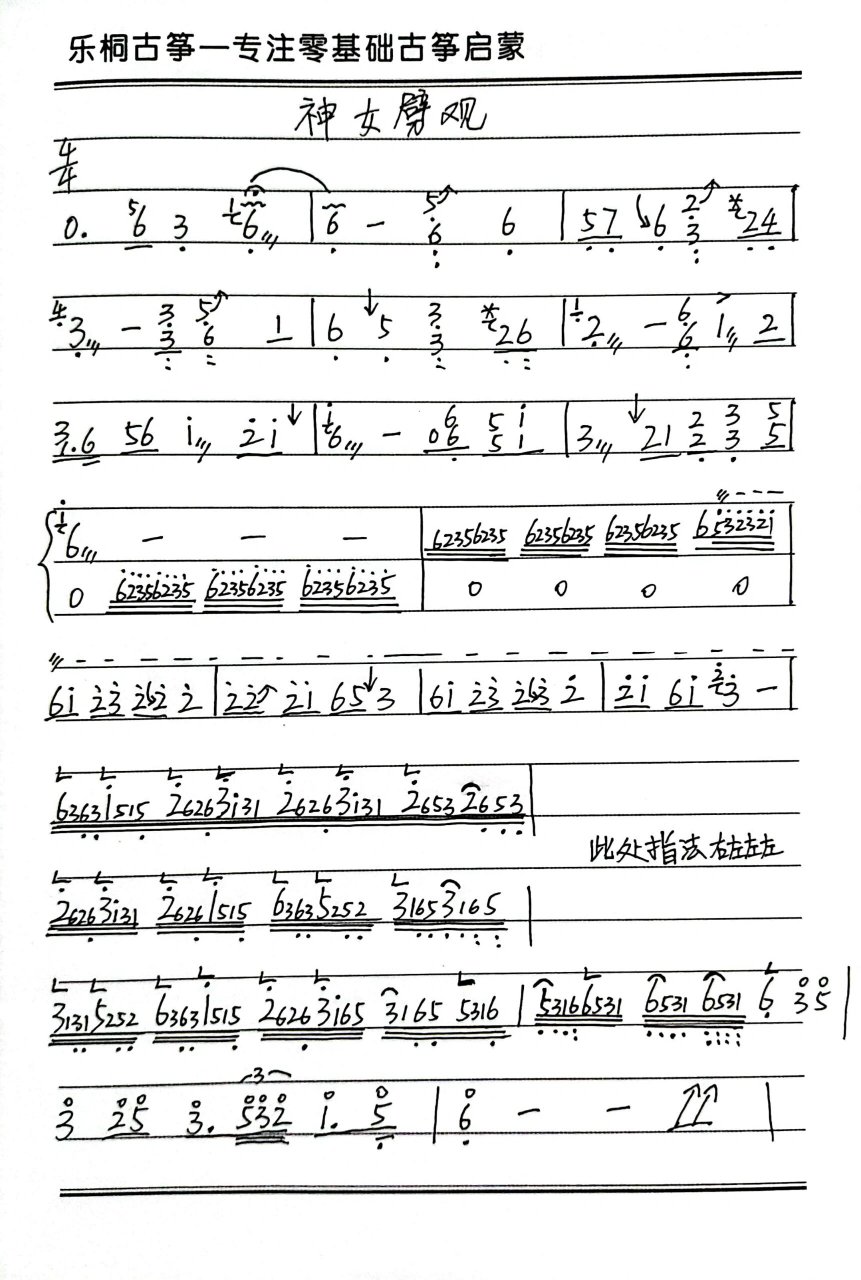 乐桐古筝—专注零基础古筝启蒙
神女劈观
4/4
0. 56 3 6 | 6 - 5 6 6 | 57 6 2 3 24 |
4 3 - 3 3 5 6 1 | 6 5 3 3 26 | 2 - 6 6 1 2 |
3 1.6 56 i 2i | 6 - 06 6 5 5 i 1 | 3 21 2 2 3 3 5 5 |
6 - - - | 62356235 62356235 62356235 6532321
0 62356235 62356235 62356235 | 0 0 0 0
6i 23 22 2 | 22 2i 65 3 | 6i 23 23 2 | 2i 6i 2 3 - |
63631515 26263131 26263131 26532653 |
此处指法右左左左
26263131 26261515 63635252 31653165 |
31315252 63631515 26263165 3165 5316 | 53166531 6531 6531 6 35 |
3 25 3. 532 i. 5 | 6 - - |
3